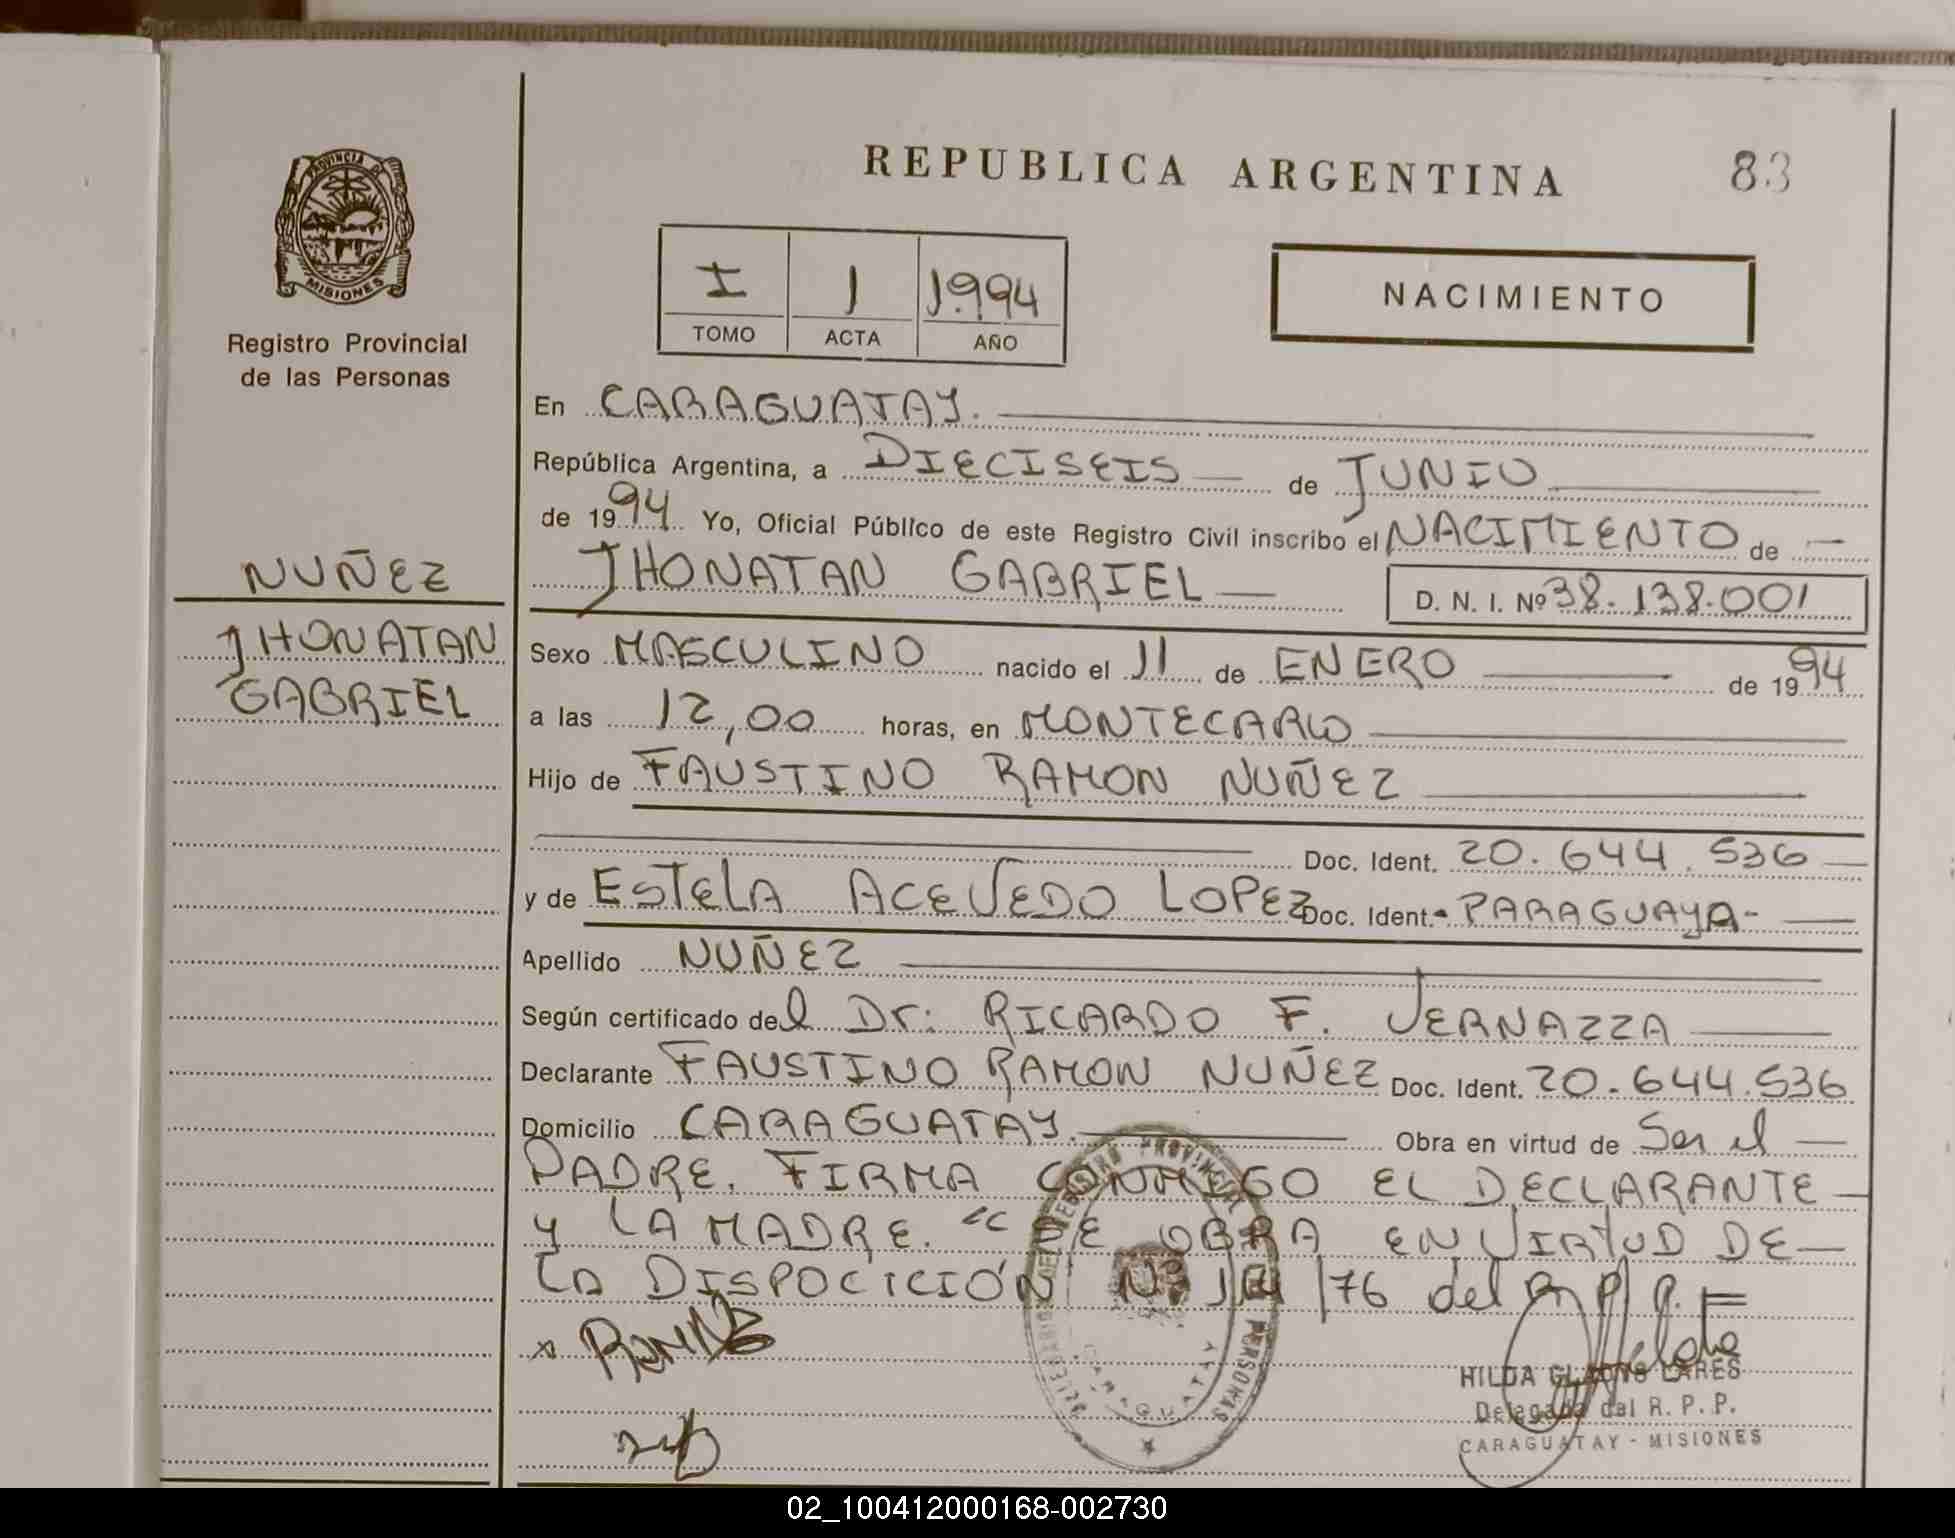 REPUBLICA ARGENTINA
83
PROVINCIA DE
MISIONES
Registro Provincial
de las Personas
I J 1.994
TOMO ACTA AÑO
NACIMIENTO
En CARAGUATAY.
República Argentina, a DIECISEIS de JUNIO
de 1994 Yo, Oficial Público de este Registro Civil inscribo el NACIMIENTO de
JHONATAN GABRIEL D. N. I. Nº 38.138.001
NUÑEZ
JHONATAN
GABRIEL
Sexo MASCULINO nacido el 11 de ENERO de 1994
a las 12,00 horas, en MONTECARLO
Hijo de FAUSTINO RAMON NUÑEZ
Doc. Ident. 20.644.536
y de ESTELA ACEVEDO LOPEZ Doc. Ident. - PARAGUAYA-
Apellido NUÑEZ
Según certificado del Dr: RICARDO F. VERNAZZA
Declarante FAUSTINO RAMON NUÑEZ Doc. Ident. 20.644.536
Domicilio CARAGUATAY. Obra en virtud de Ser el
PADRE. FIRMA CONMIGO EL DECLARANTE
y LA MADRE. "SE OBRA EN VIRTUD DE
LA DISPOCICIÓN Nº /76 del R P P.
HILDA GLADYS LARES
Delegada del R. P. P.
CARAGUATAY - MISIONES
REGISTRO PROVINCIAL PERSONAS
CARAGUATAY
02_100412000168-002730